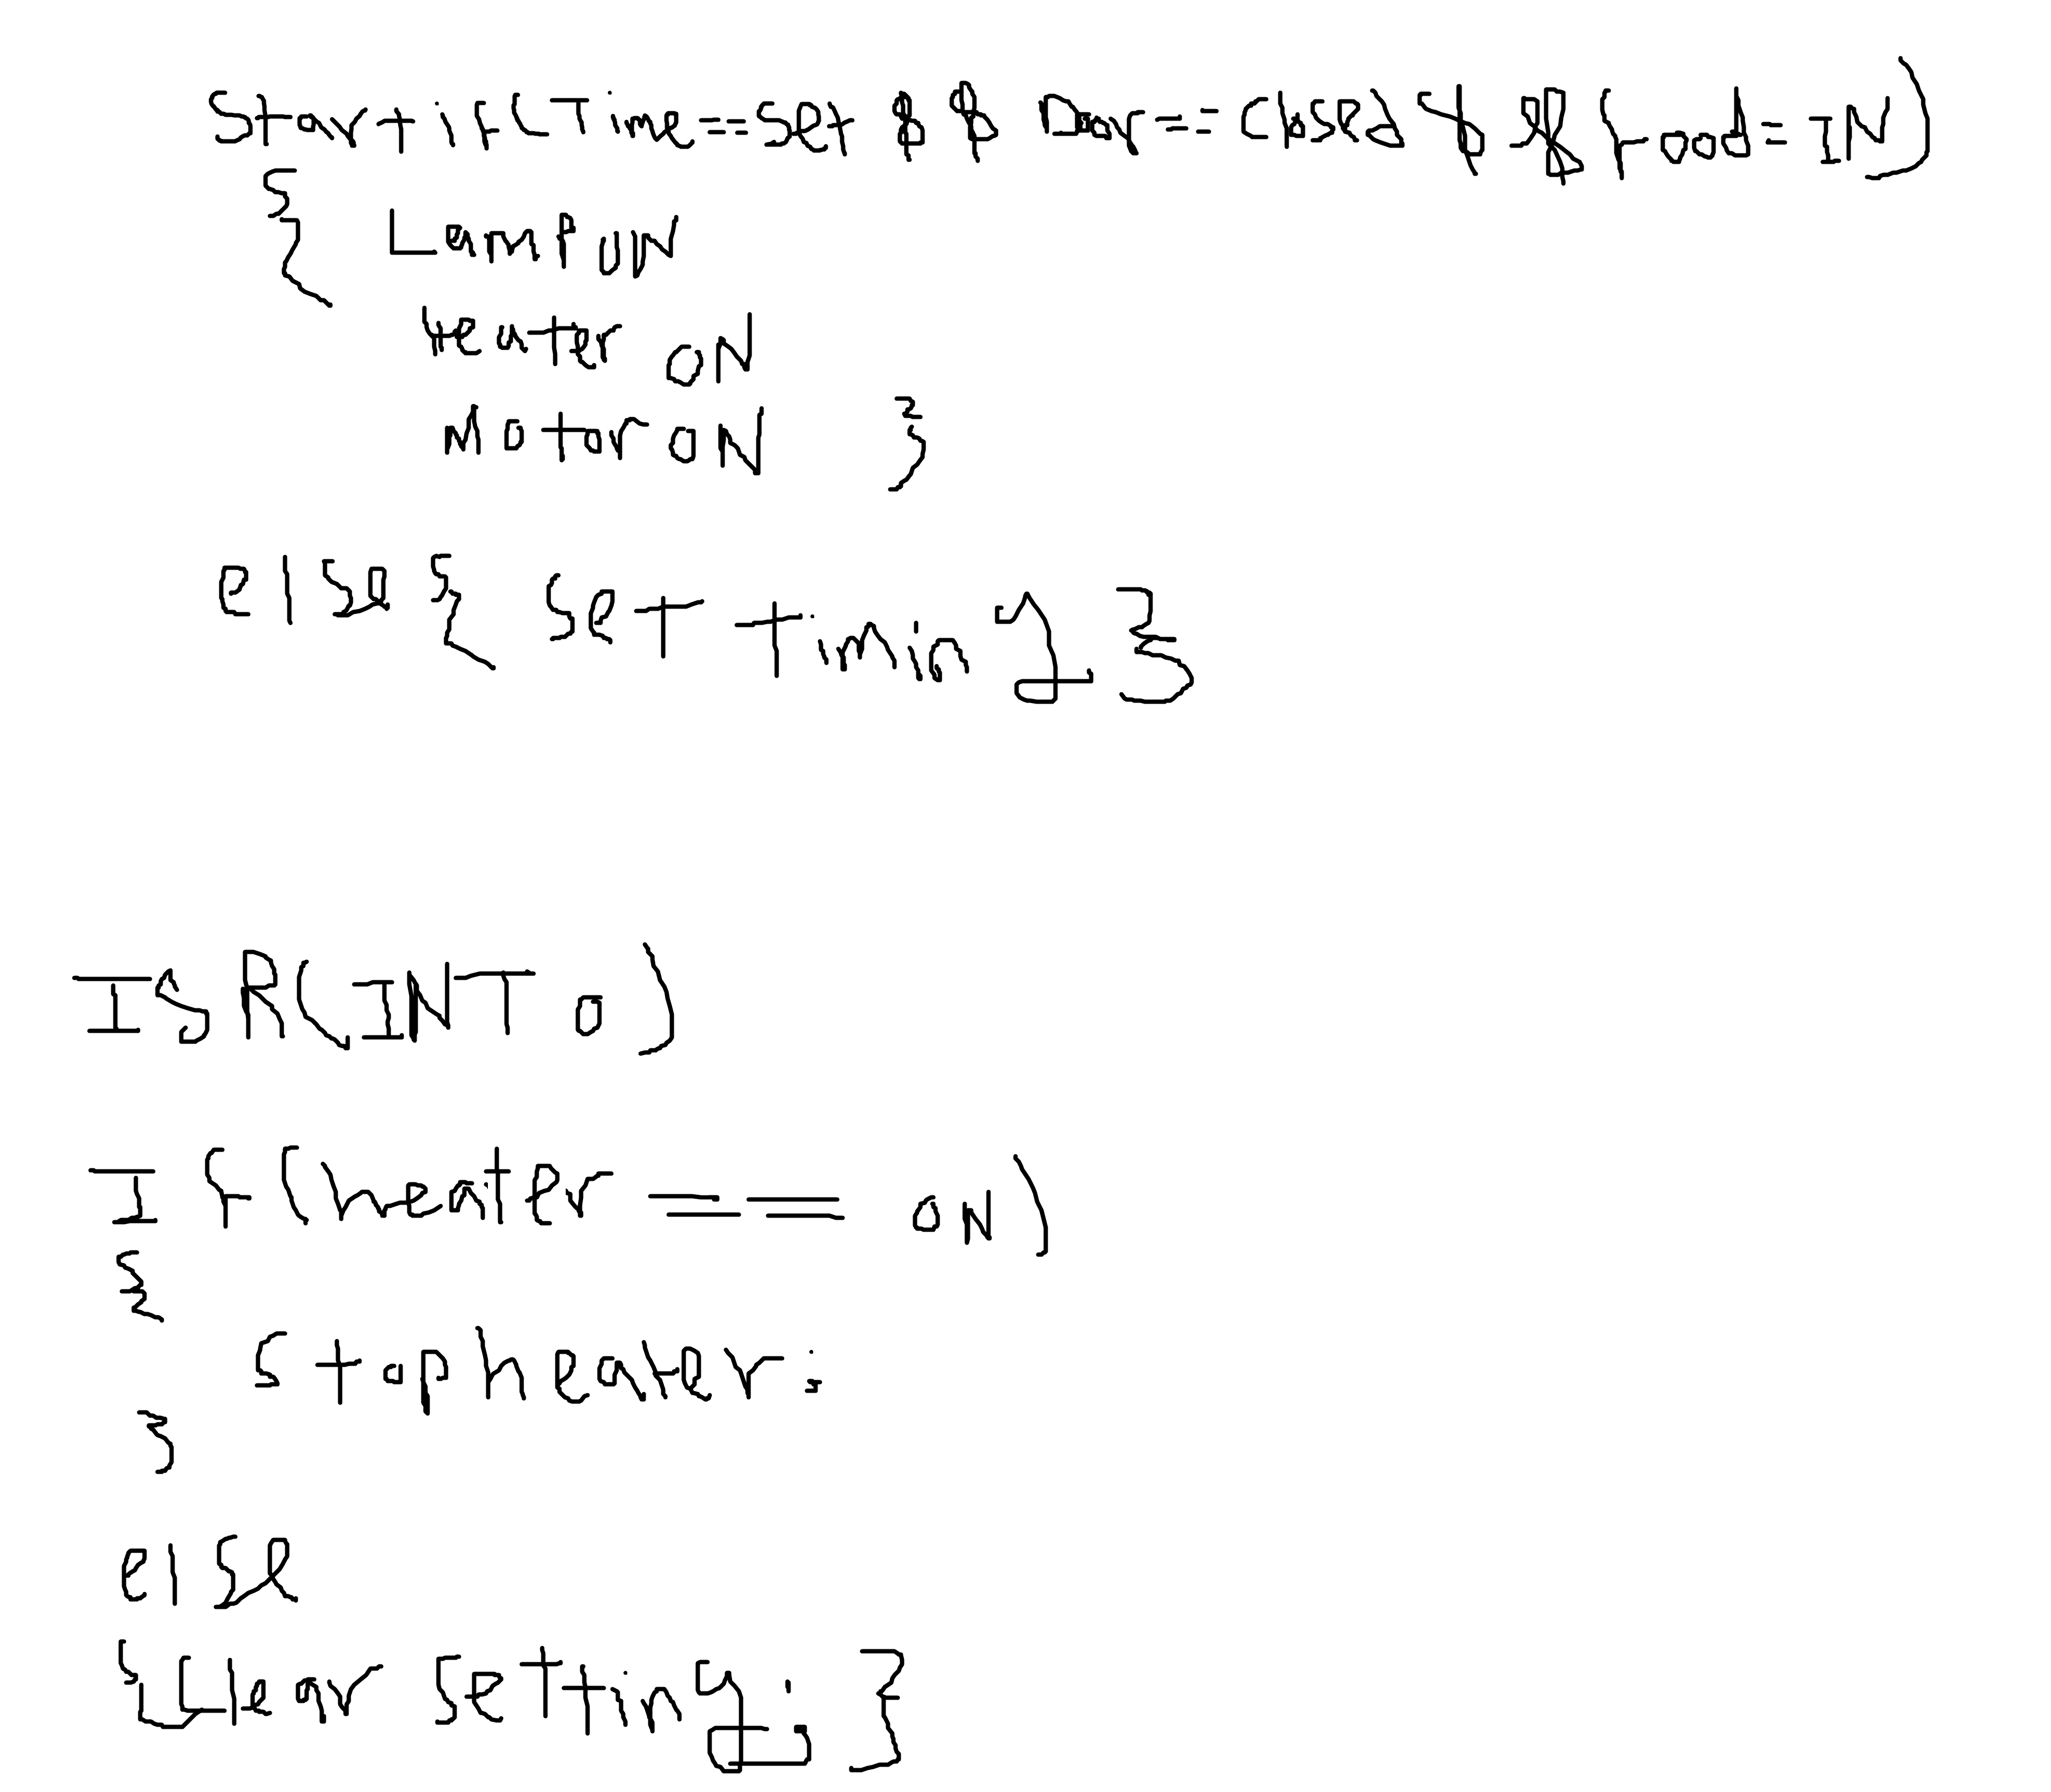 Start if (Time==set && Door==closed && food=IN)
{ Lamp ON
Heater ON
Motor ON }
else { set timing }
ISR(INT 0)
If (heater == ON)
{
Stop heater;
}
else
{ Clear setting; }